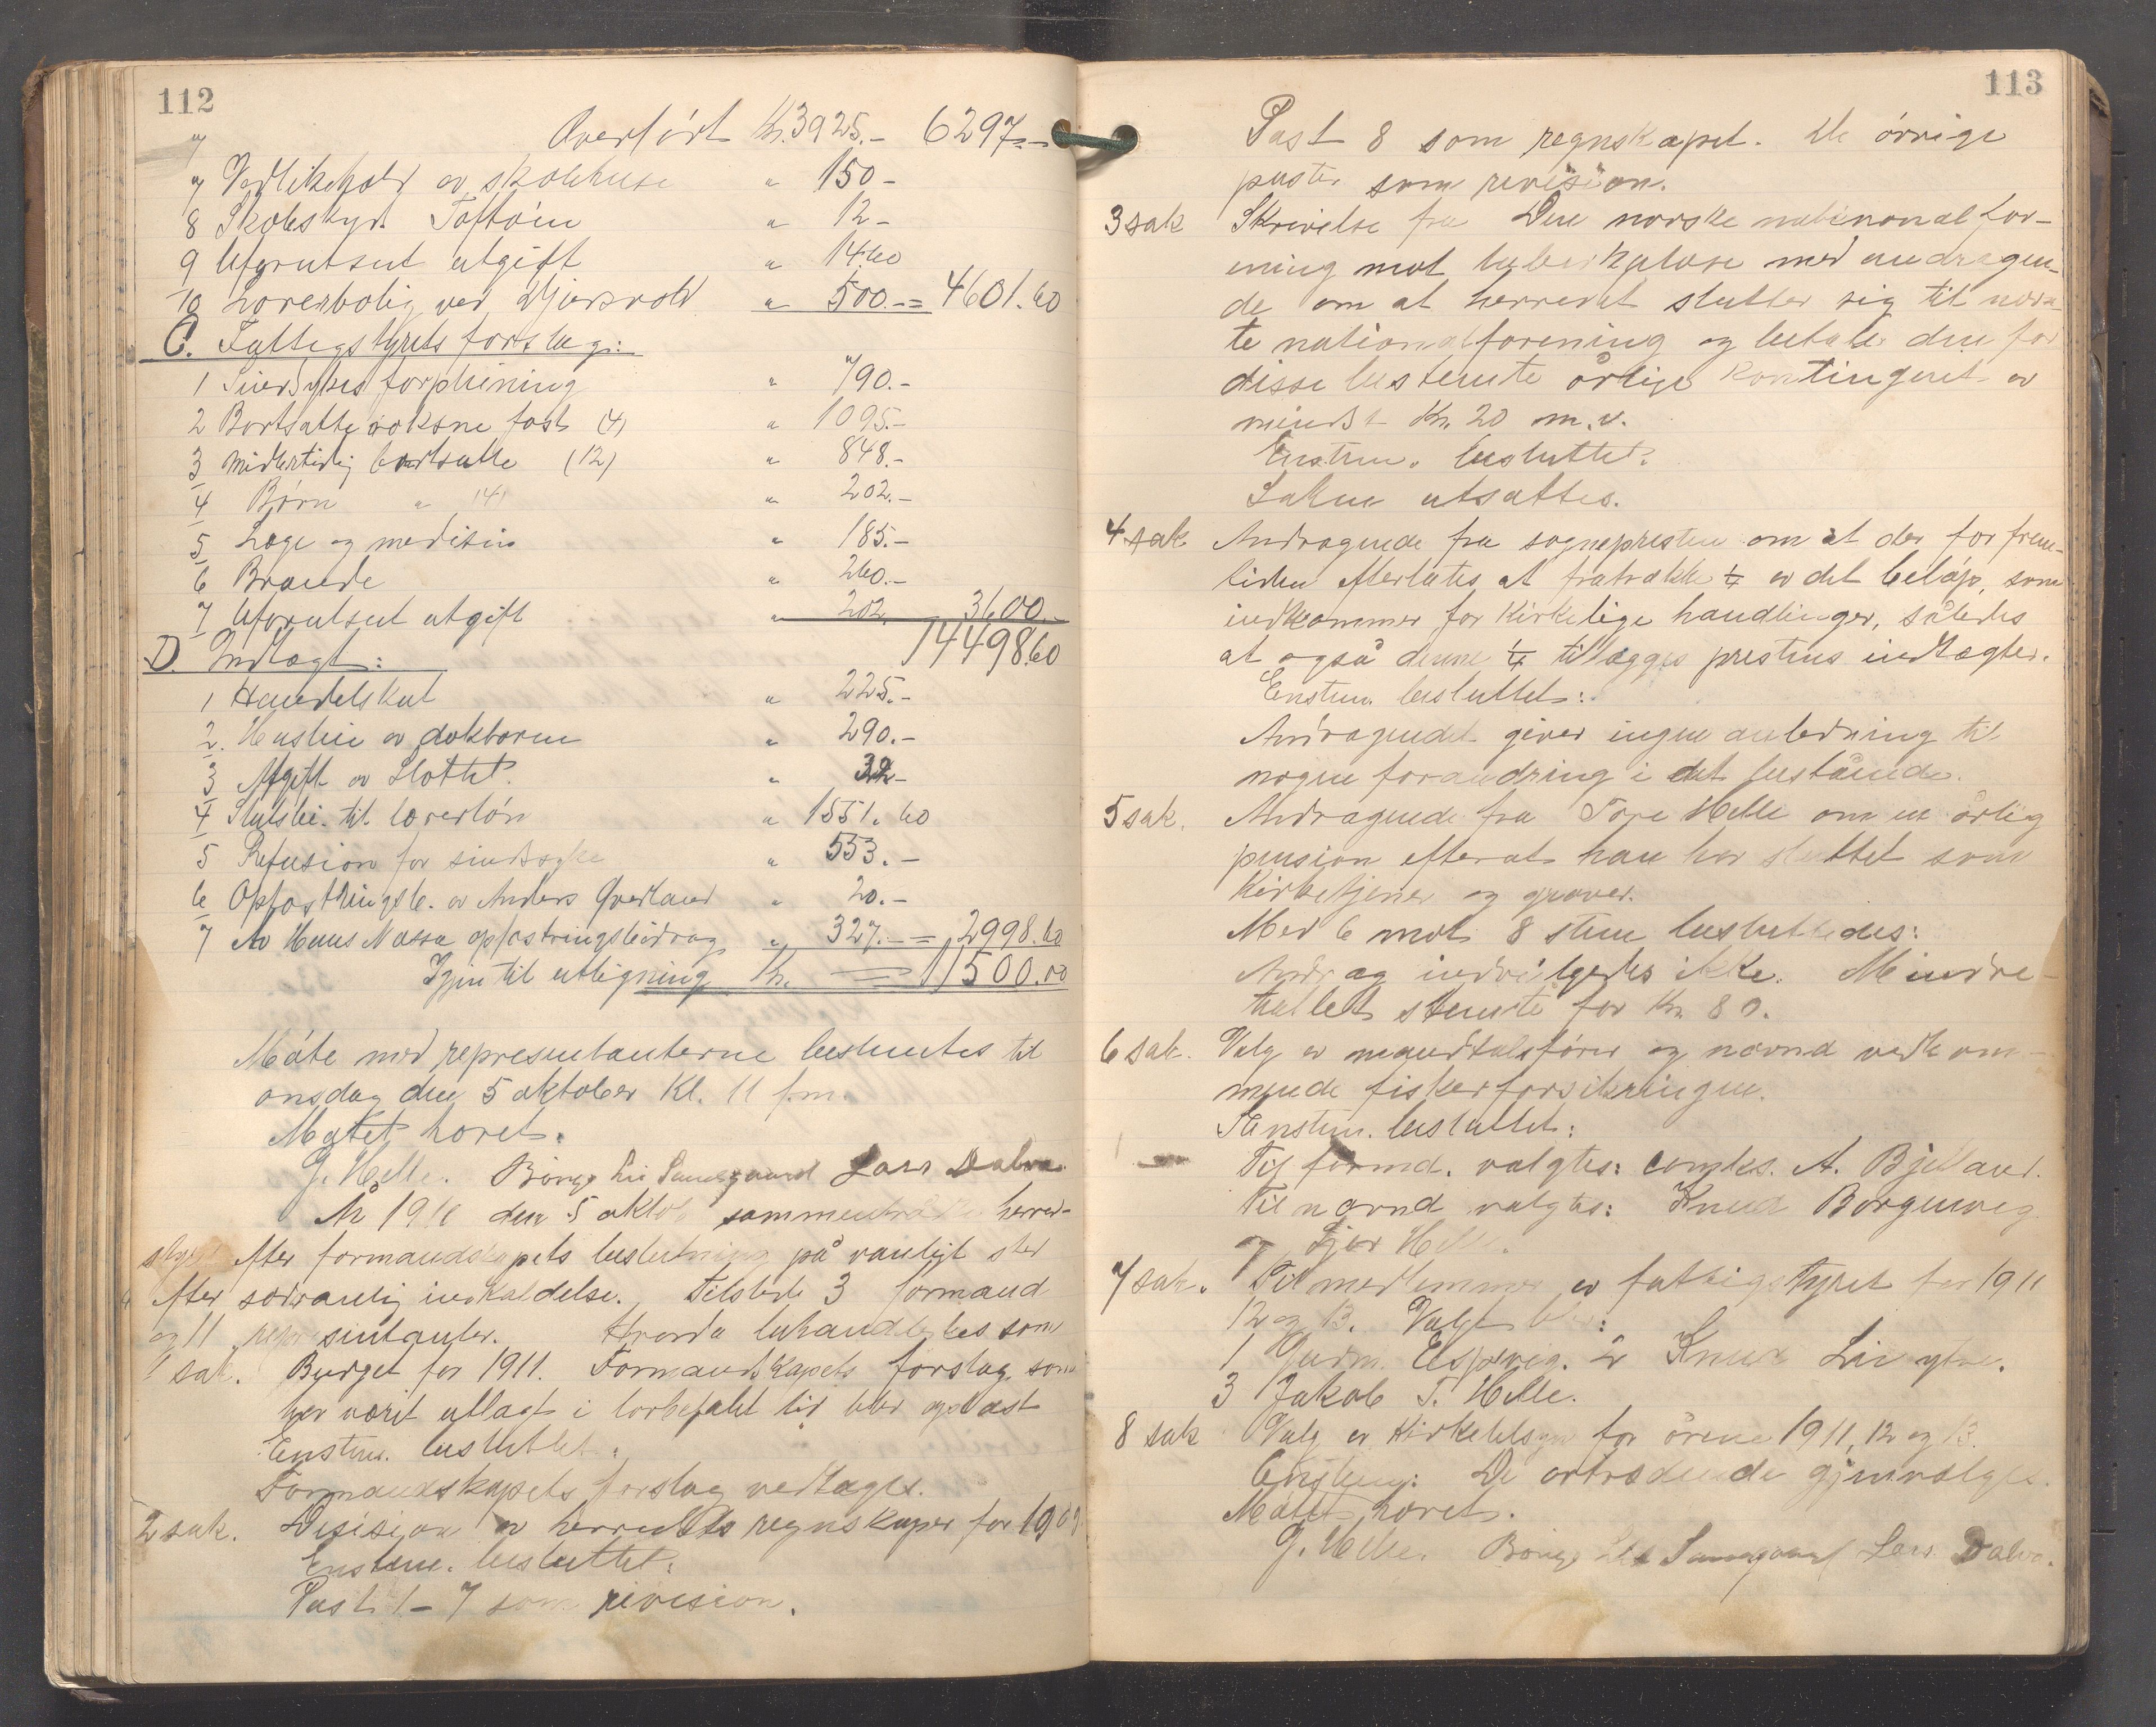 112
Overført Kr. 3925.- 6297.-
7 Vedlikehold av skolehuse " 150-
8 Skoleskyds Toftøin " 12-
9 Uforutset utgift " 14.60
10 Lærerbolig ved Djupsvold " 500.- = 4601.60
C. Fattigstyrets forslag:
1 Sindsykes forpleining " 790.-
2 Bortsatte voksne fast (4) " 1095.-
3 Midlertidig bortsatte (12) " 848.-
4 Børn " (4) " 202.-
5 Læge og medisin " 185.-
6 Brænde " 260.-
7 Uforutset utgift " 202. 3600.-
14498.60
D. Indtægt:
1 Handelskat " 225.-
2. Husleie av doktoren " 290.-
3 Afgift av Slottet. " 32-
4 Statsbi. til lærerløn " 1551.60
5 Refusion for sindssyke " 553.-
6 Opfostringsb. av Anders Qverland " 20.-
7 Av Hans Nassa opfostringsbidrag " 327.- = 2998.60
Igjen til utligning Kr. = 11500.00
Møte med representanterne bestemtes til
onsdag den 5 oktober Kl. 11 f.m.
Møtet hævet.
G. Helle. Børge Lie Lars Dalva.
År 1910 den 5 oktob. sammentrådte herred-
styret efter formandskapets beslutning på vanligt sted
efter sædvanlig indkaldelse. Tilstede 3 formænd
og 11 representanter. Hvorda behandledes som
1 sak. Budget for 1911. Formandskapets forslag som
har været utlagt i lovbefalt tid blev oplæst
Enstem. besluttet:
Formandskapets forslag vedtages.
2 sak. Desisjon av herredets regnskaper for 1909.
Enstem. besluttet:
Post 1-7 som revision.
113
Post 8 som regnskapet. De øvrige
poster som revision.
3 sak Skrivelse fra Den norske nationalfor-
ening mot tuberkulose med andragen-
de om at herredet slutter sig til nævn-
te nationalforening og betaler den for
disse bestemte årlige kontingent av
mindst Kr. 20 m.v.
Enstem. besluttet:
Saken utsættes.
4 sak Andragende fra sognepresten om at der for frem-
tiden efterlates at fratrække ¼ av det beløp, som
indkommer for kirkelige handlinger, således
at også denne ¼ tillægges prestens indtægter.
Enstem. besluttet:
Andragendet giver ingen anledning til
nogen forandring i det bestående.
5 sak. Andragende fra Tore Helle om en årlig
pension efterat han har sluttet som
Kirketjener og graver.
Med 6 mot 8 stem. besluttedes:
Andrag. indvilgedes ikke. Mindre-
tallet stemte for Kr. 80.
6 sak. Valg av mandtalsfører og nævnd vedkom-
mende fiskerforsikringen.
Enstem. besluttet:
Til formd. valgtes: A. Bjelland.
Til nævnd valgtes: Knud Borgenvig
og Helle.
7 sak. Til medlemmer av fattigstyret for 1911
12 og 13. Valgt blev:
1 Gudm. Espevig. 2 Knud Lie ytre.
3 Jakob T. Helle.
8 sak Valg av Kirketilsyn for årene 1911, 12 og 13.
Enstem: De uttrædende gjenvælges.
Møtet hævet.
G. Helle. Børge Lie Lars Dalva.